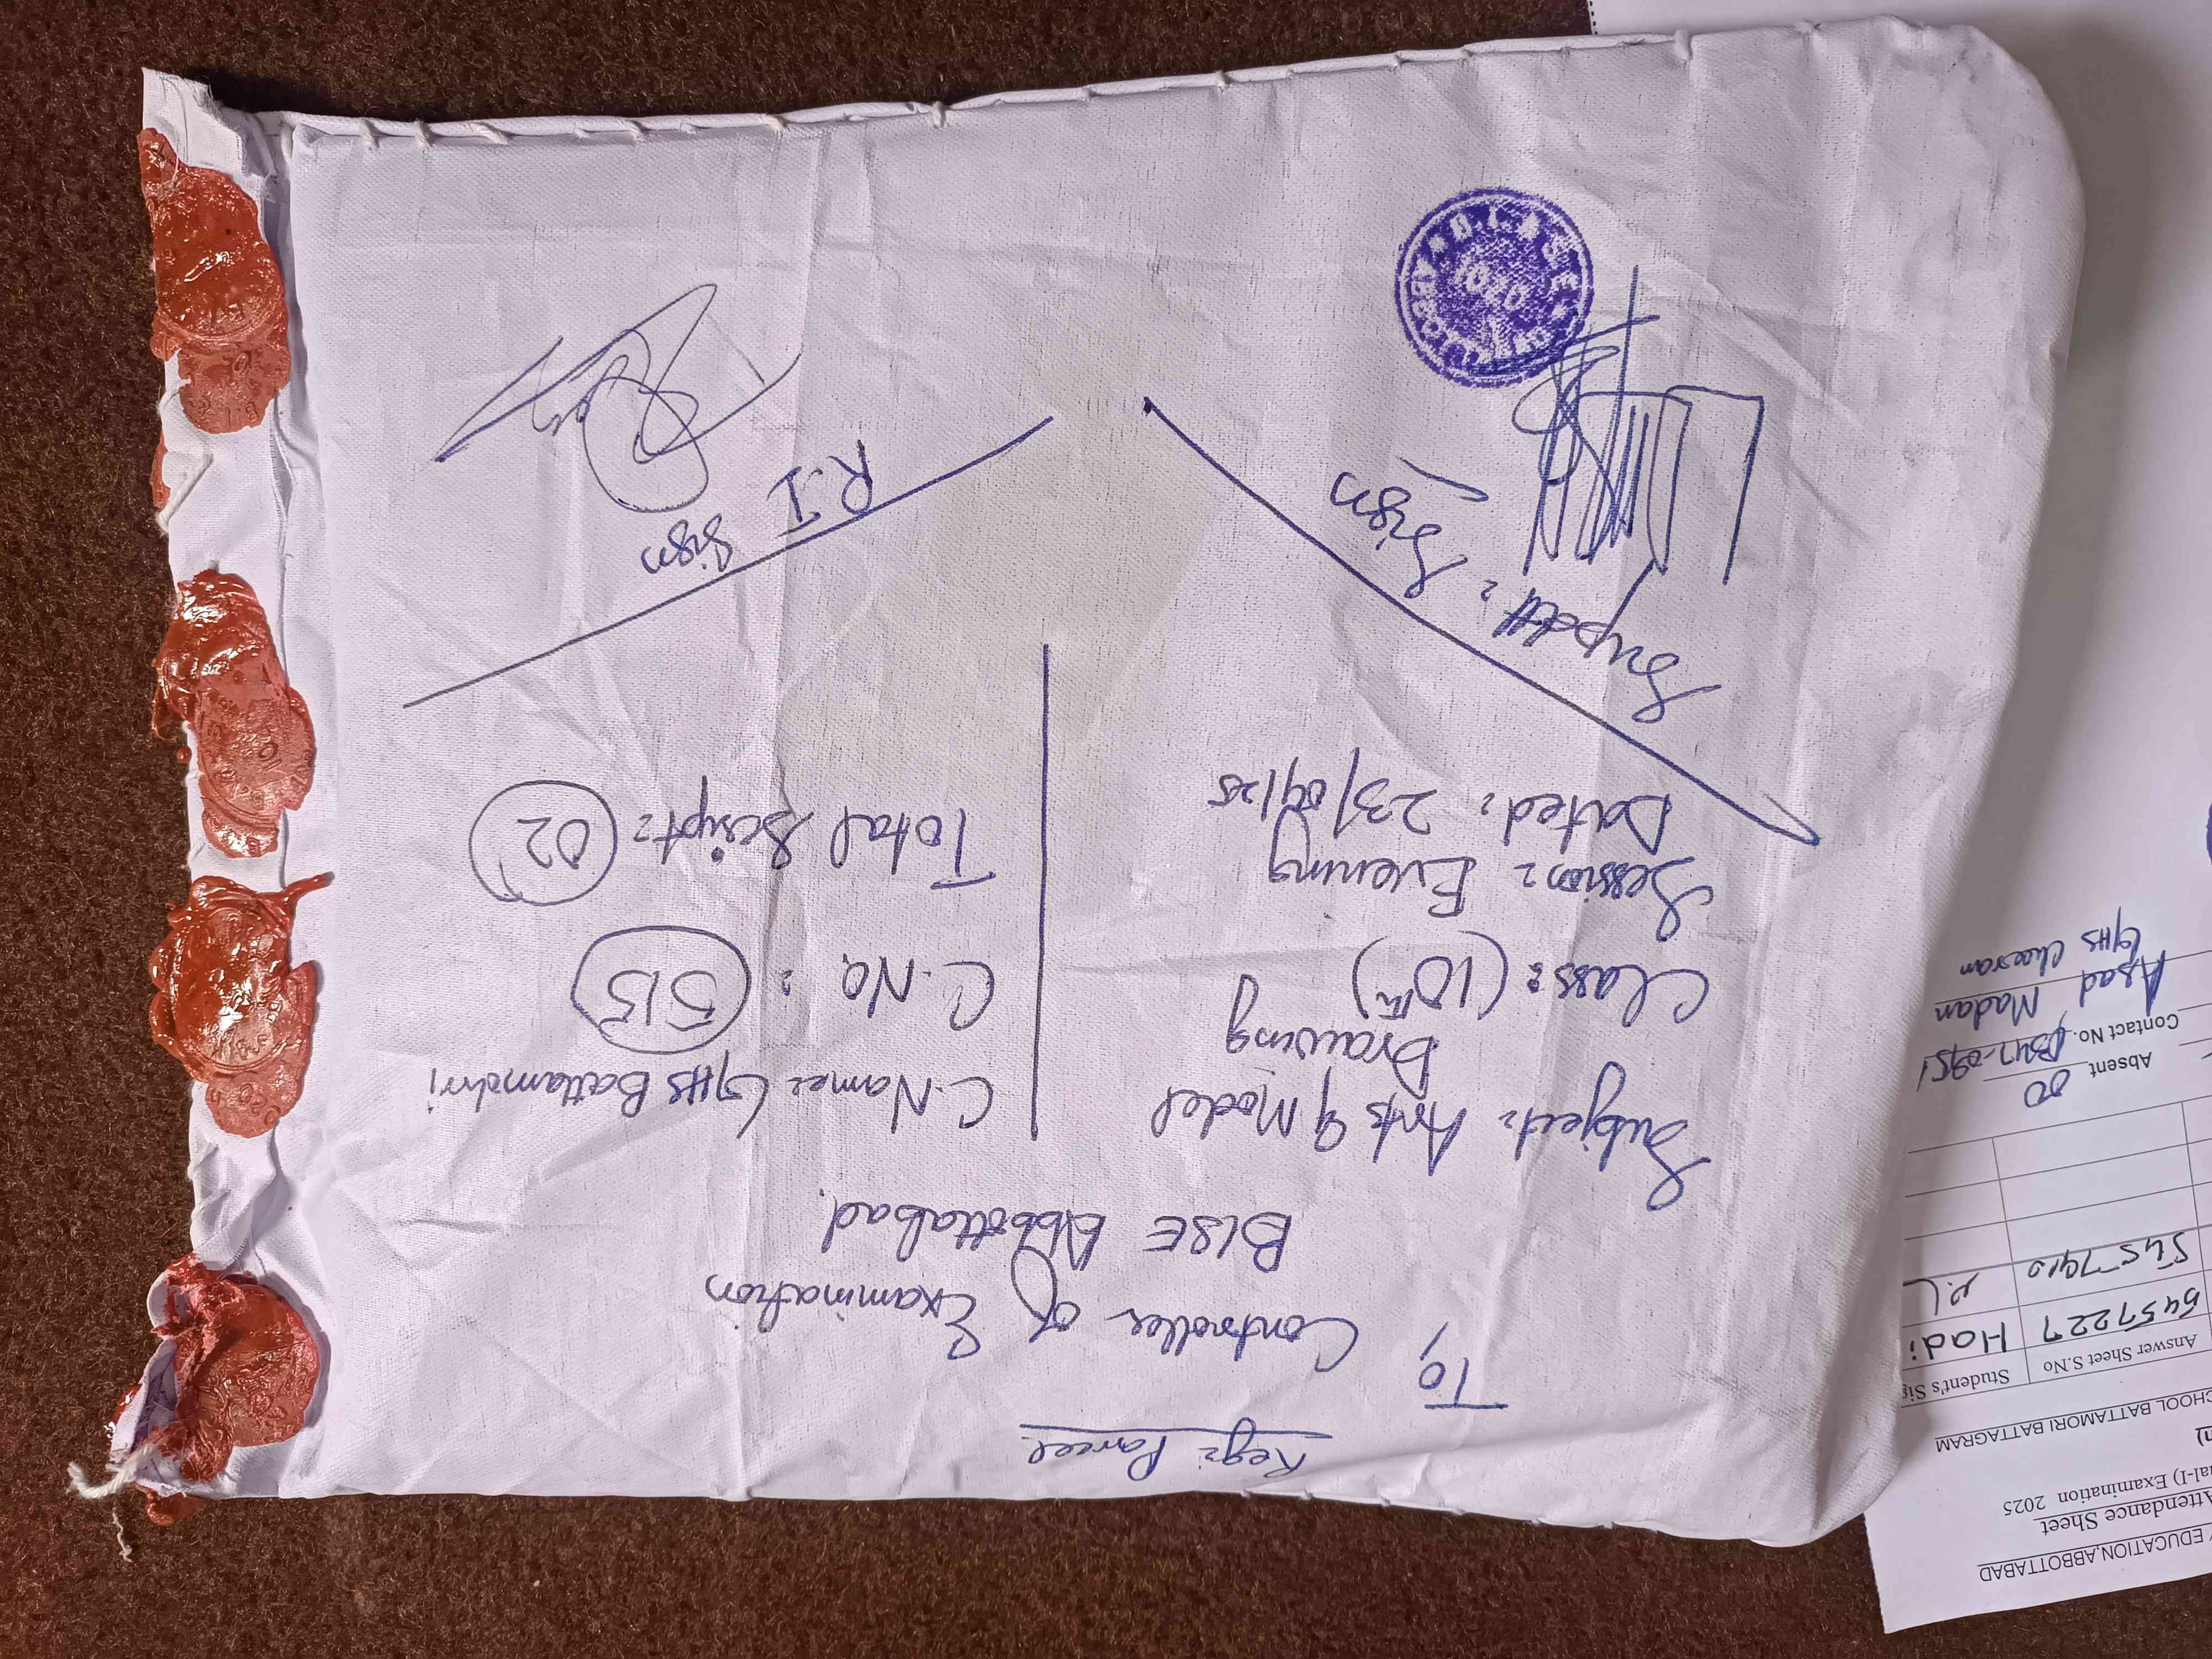 Reg: Parcel.
To,
Controller of Examination
BISE Abbottabad.
Subject: Arts & Model
Drawing
Class: (10th)
Session: Evening
Dated: 23/04/25
C.Name: GHS Battamori
C.No.: 515
Total Script: 02
Supdtt: Sign
R.I
Sign
EDUCATION, ABBOTTABAD
Attendance Sheet
Examination 2025
CHOOL BATTAMORI BATTAGRAM
Answer Sheet S.No
Student's Sig
5457227
Hadi
Absent 00
Contact No.
Asad Madan
GHS